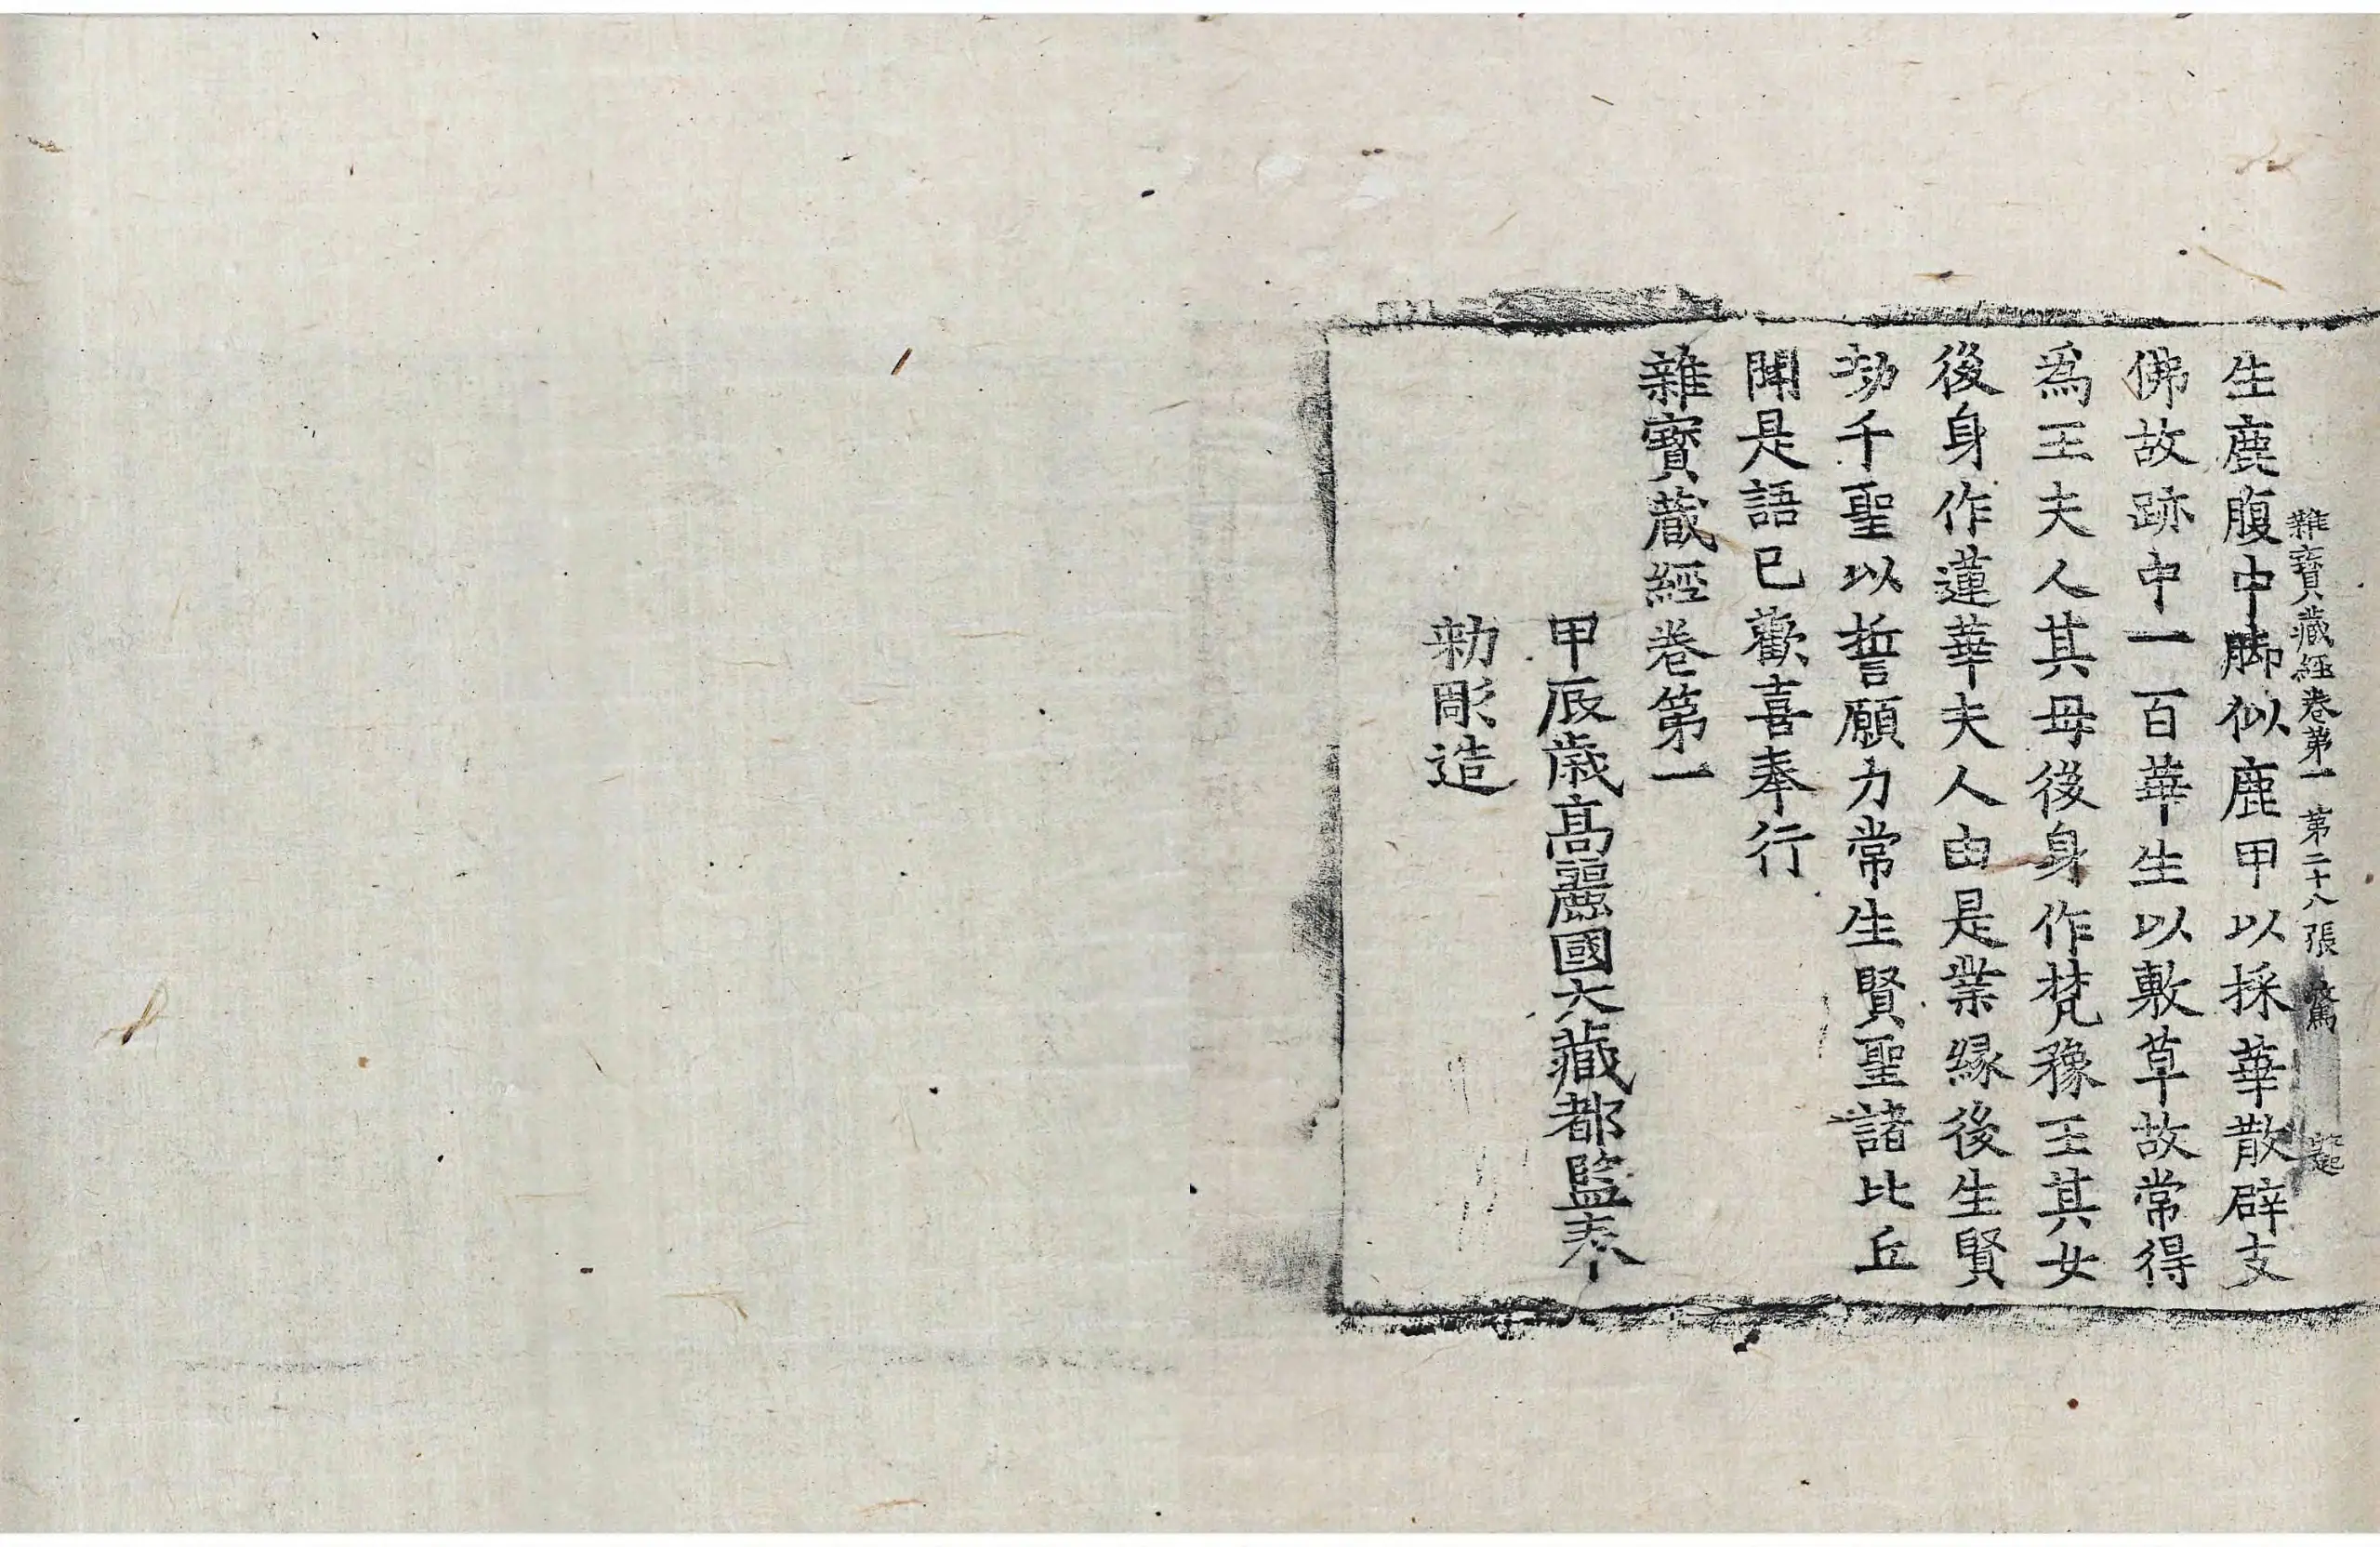 雜寶藏經卷第一 第二十八張 驚
生鹿腹中脚似鹿甲以採華散辟支
佛故跡中一百華生以敷草故常得
爲王夫人其母後身作梵豫王其女
後身作蓮華夫人由是業緣後生賢
劫千聖以誓願力常生賢聖諸比丘
聞是語已歡喜奉行
雜寶藏經卷第一
甲辰歳髙麗國大藏都監奉
勑彫造